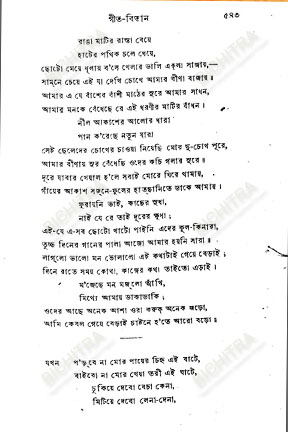 গীত-বিতান ৫৪৩
রাঙা মাটির রাস্তা বেয়ে
হাটের পথিক চলে ধেয়ে,
ছোটো মেয়ে ধুলায় ব'সে খেলার ডালি একলা সাজায়,—
সামনে চেয়ে এই যা দেখি চোখে আমার বীণা বাজায়॥
আমার এ যে বাঁশের বাঁশী মাঠের সুরে আমার সাধন,
আমার মনকে বেঁধেছে রে এই ধরণীর মাটির বাঁধন।
নীল আকাশের আলোর ধারা
পান ক'রেছে নতুন যারা
সেই ছেলেদের চোখের চাওয়া নিয়েছি মোর দু-চোখ পূরে,
আমার বীণায় সুর বেঁধেছি ওদের কচি গলার সুরে॥
দূরে যাবার খেয়াল হ'লে সবাই মোরে ঘিরে থামায়,
গাঁয়ের আকাশ সজনে-ফুলের হাতছানিতে ডাকে আমায়।
ফুরায়নি ভাই, কাছের সুধা,
নাই যে রে তাই দূরের ক্ষুধা;
এই-যে এ-সব ছোটো খাটো পাইনি এদের কূল-কিনারা,
তুচ্ছ দিনের গানের পালা আজো আমার হয়নি সারা॥
লাগ্‌লো ভালো মন ভোলালো এই কথাটাই গেয়ে বেড়াই;
দিনে রাতে সময় কোথা, কাজের কথা তাইতো এড়াই।
ম'জেছে মন মজ্‌লো আঁখি,
মিথ্যে আমায় ডাকাডাকি;
ওদের আছে অনেক আশা ওরা করুক্ অনেক জড়ো,
আমি কেবল গেয়ে বেড়াই চাইনে হ'তে আরো বড়ো॥
যখন প'ড়্‌বে না মোর পায়ের চিহ্ন এই বাটে,
বাইবো না মোর খেয়া তরী এই ঘাটে,
চুকিয়ে দেবো বেচা কেনা,
মিটিয়ে দেবো লেনা-দেনা,